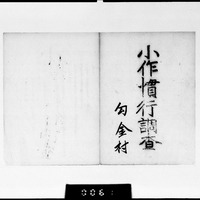 小作慣行調査
勾金村
006